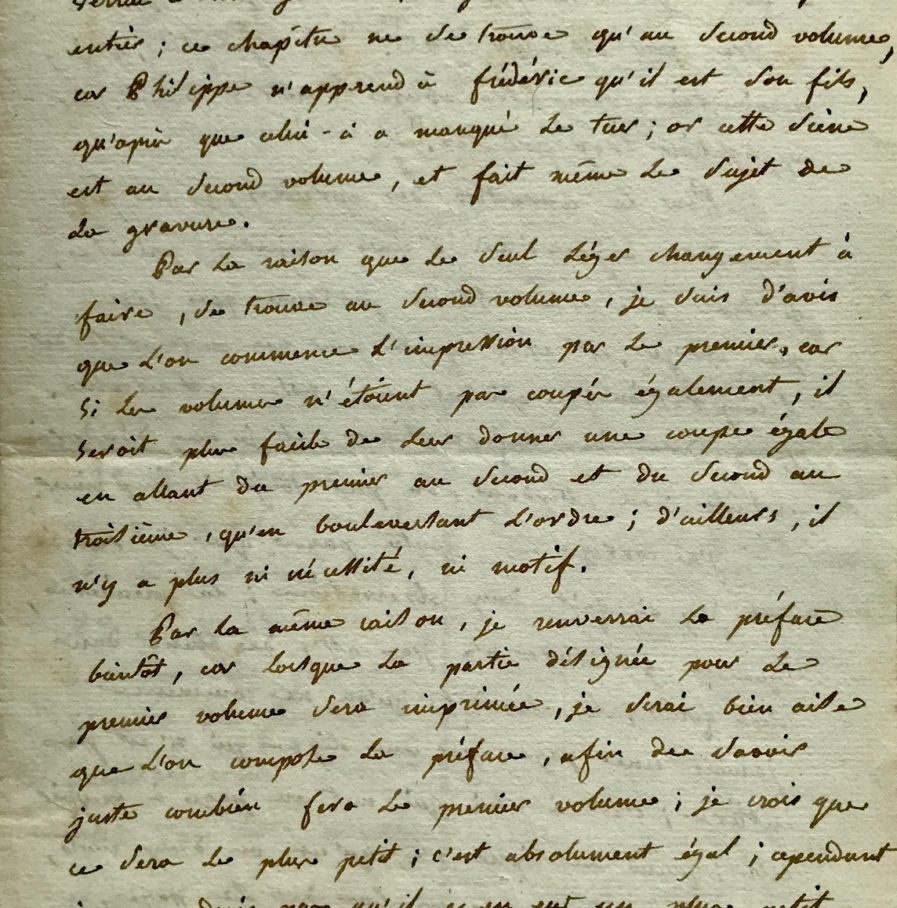 entrér; ce chapître ne se trouve qu'au second volume,
car Philippe n'apprend à frédéric qu'il est son fils,
qu'après que celui-ci a manqué le tuer; or cette scène
est au second volume, et fait même le sujet de
la gravure.
Par la raison que le seul léger changement à
faire, se trouve au second volume, je suis d'avis
que l'on commence l'impression par le premier, car
si les volumes n'étoient pas coupés également, il
seroit plus facile de leur donner une coupe égale
en allant du premier au second et du second au
troisième, qu'en bouleversant l'ordre; d'ailleurs, il
n'y a plus ni nécessité, ni motif.
Par la même raison, je renverrai la préface
bientôt, car lorsque la partie désignée pour le
premier volume sera imprimée, je serai bien aise
que l'on compose la préface, afin de savoir
juste combien fera le premier volume; je crois que
ce sera le plus petit; c'est absolument égal; cependant
qu'il un plus petit